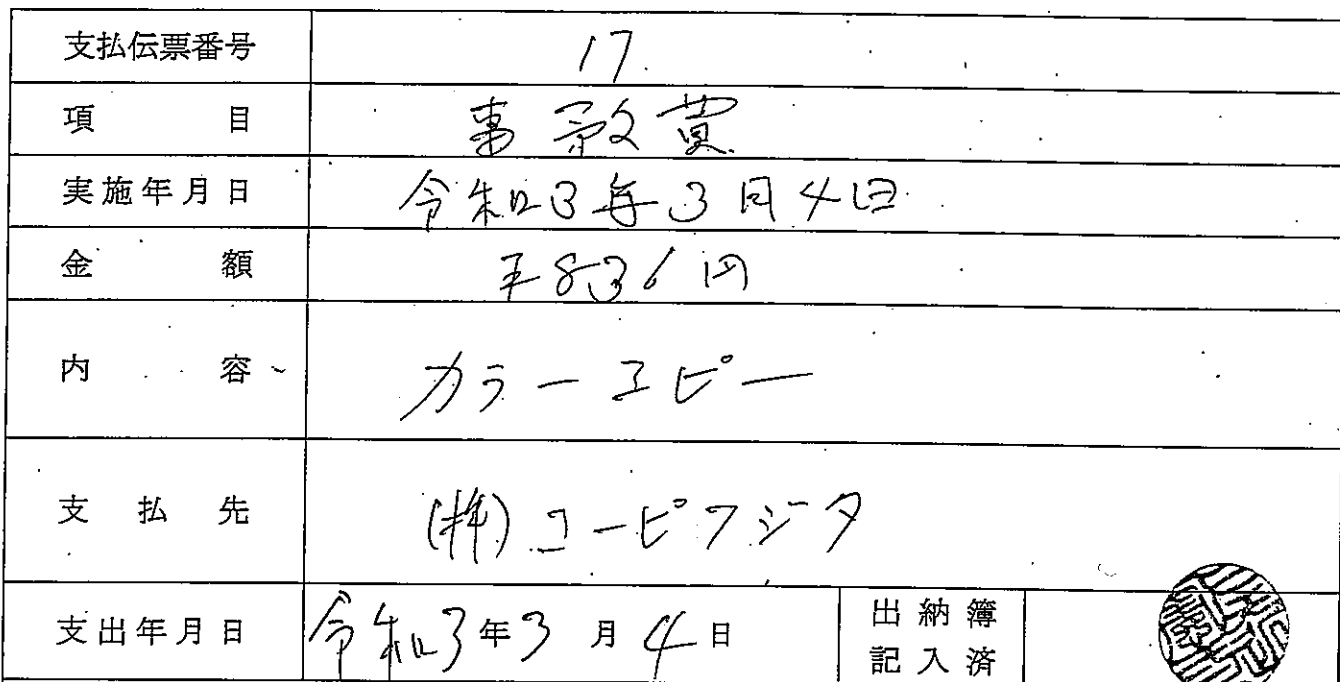 支払伝票番号 17
項目 事務費
実施年月日 令和3年3月4日
金額 ¥836円
内容 カラーコピー
支払先 (株)コーピフジタ
支出年月日 令和3年3月4日 出納簿記入済